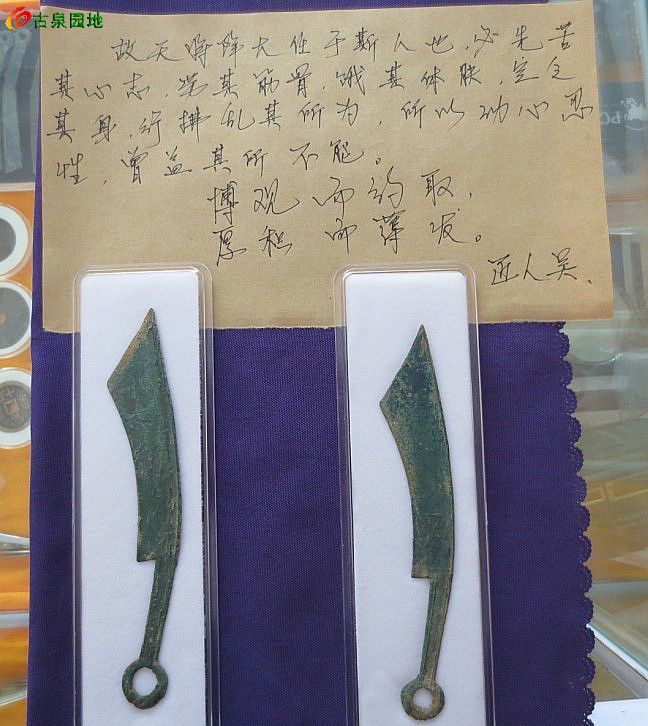 古泉园地
故天将降大任于斯人也,必先苦
其心志,劳其筋骨,饿其体肤,空乏
其身,行拂乱其所为,所以动心忍
性,曾益其所不能。
博观而约取,
厚积而薄发。
近人吴.